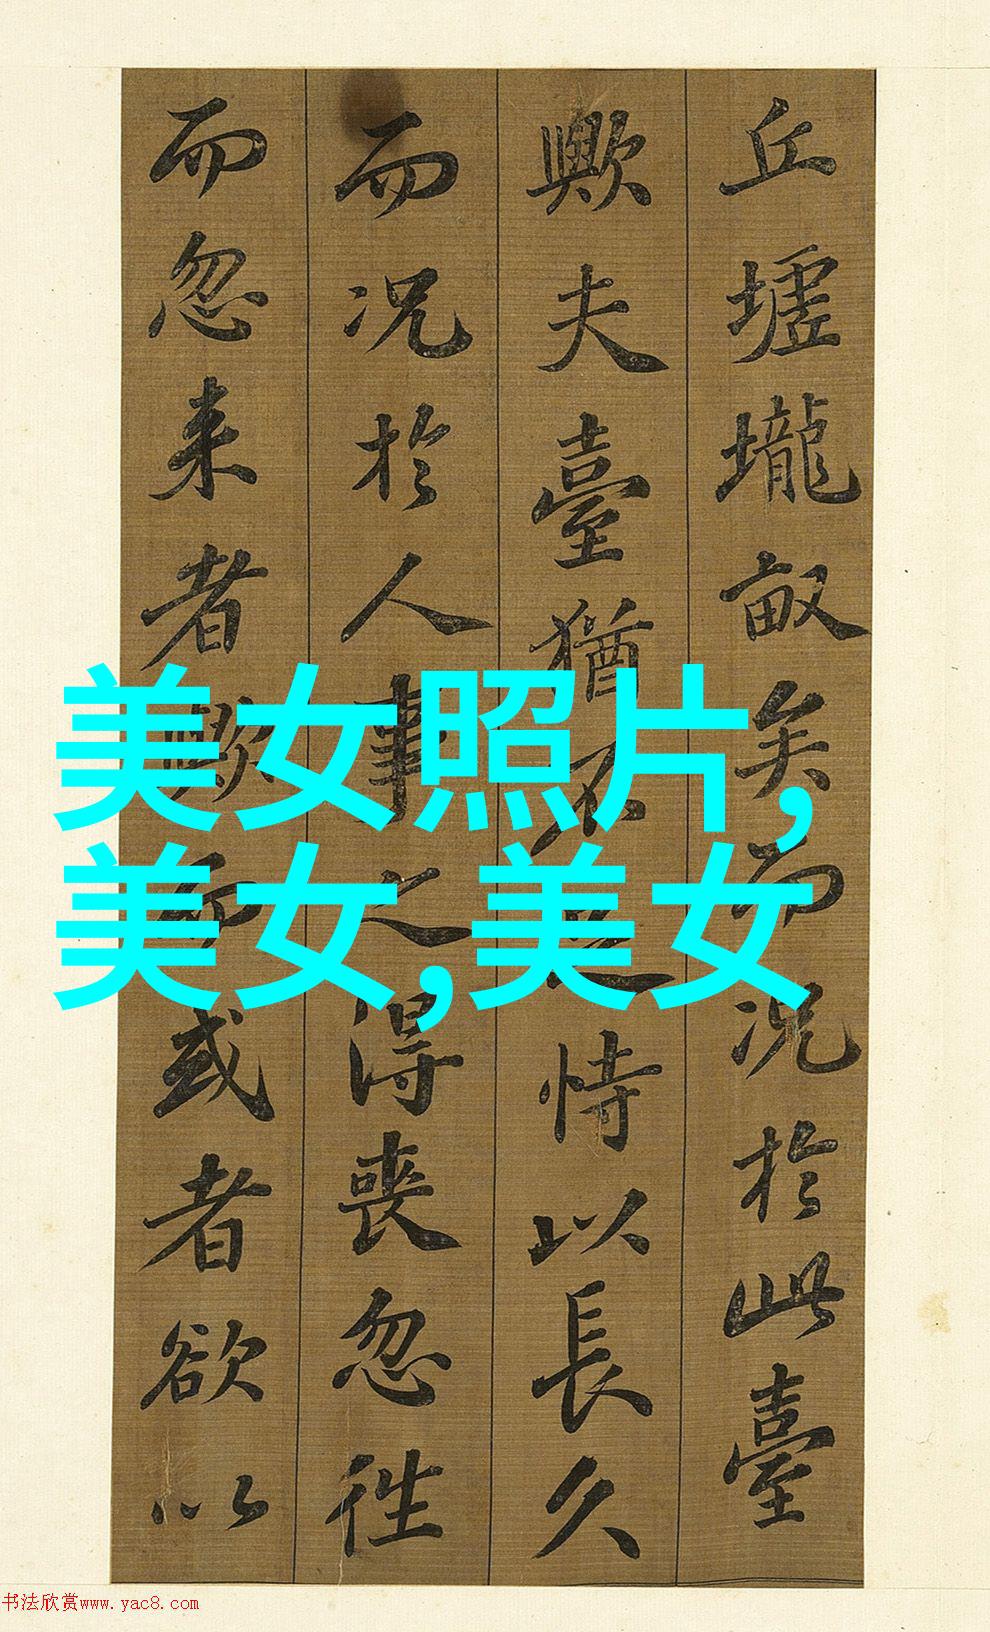 丘墟壠畝矣而況於此臺
歟夫臺猶不足恃以長久
而况於人事之得喪忽往
而忽来者歟而或者欲以
美女照片,
美女,美女
书法欣赏www.yac8.com